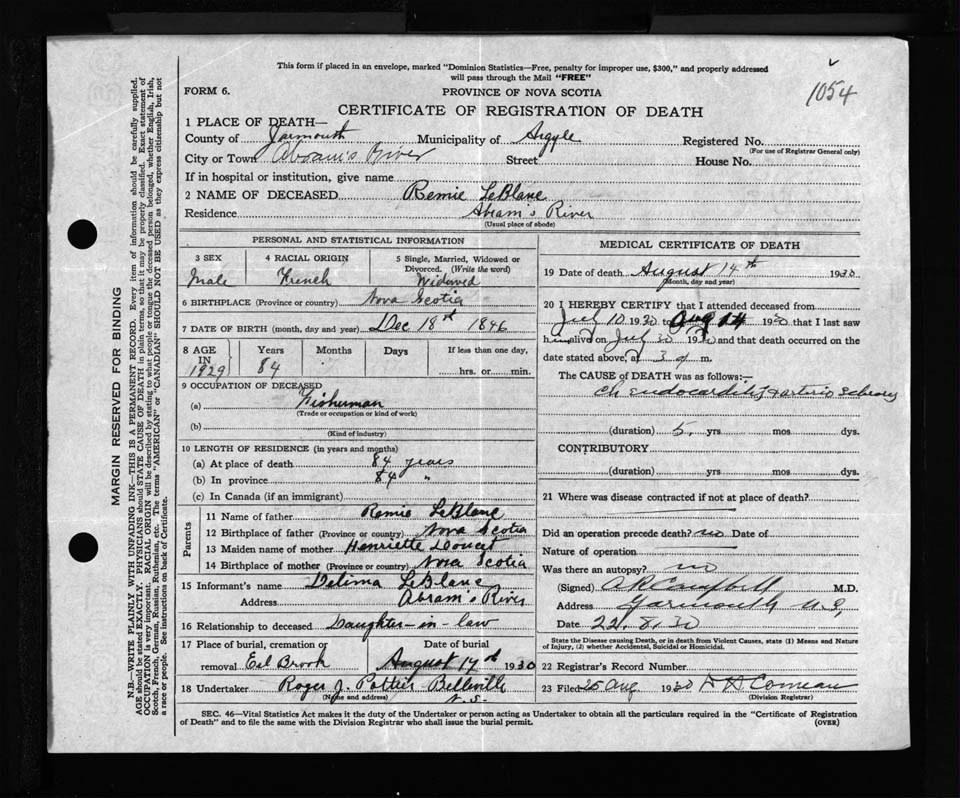 This form if placed in an envelope, marked "Dominion Statistics—Free, penalty for improper use, $300," and properly addressed
will pass through the Mail "FREE"
1054
FORM 6.
PROVINCE OF NOVA SCOTIA
CERTIFICATE OF REGISTRATION OF DEATH
1 PLACE OF DEATH—
County of Yarmouth Municipality of Argyle Registered No.
(For use of Registrar General only)
City or Town Abram's River Street House No.
If in hospital or institution, give name
2 NAME OF DECEASED Remie LeBlanc
Residence Abram's River
(Usual place of abode)
PERSONAL AND STATISTICAL INFORMATION
3 SEX 4 RACIAL ORIGIN 5 Single, Married, Widowed or
Divorced. (Write the word)
Male French Widowed
6 BIRTHPLACE (Province or country) Nova Scotia
7 DATE OF BIRTH (month, day and year) Dec 18st 1846
8 AGE IN Years Months Days If less than one day,
1929 84 hrs. or min.
9 OCCUPATION OF DECEASED
(a) Fisherman
(Trade or occupation or kind of work)
(b)
(Kind of industry)
10 LENGTH OF RESIDENCE (in years and months)
(a) At place of death 84 years
(b) In province 84 "
(c) In Canada (if an immigrant)
Parents
11 Name of father Remie LeBlanc
12 Birthplace of father (Province or country) Nova Scotia
13 Maiden name of mother Henriette Doucet
14 Birthplace of mother (Province or country) Nova Scotia
15 Informant's name Delima LeBlanc
Address Abram's River
16 Relationship to deceased Daughter-in-law
17 Place of burial, cremation or Date of burial
removal Eel Brook August 17th 1930
18 Undertaker Roger J. Pottier Belleville
(Name and address) N.S.
MEDICAL CERTIFICATE OF DEATH
19 Date of death August 14th 1930
(Month, day and year)
20 I HEREBY CERTIFY that I attended deceased from
July 10 1930 to Aug 14 1930 that I last saw
him alive on July 30 1930 and that death occurred on the
date stated above, at 3 a m.
The CAUSE of DEATH was as follows:—
Ch Endocarditis & arterio Sclerosis
(duration) 5 yrs mos dys.
CONTRIBUTORY
(duration) yrs mos dys.
21 Where was disease contracted if not at place of death?
Did an operation precede death? no Date of
Nature of operation
Was there an autopsy? no
(Signed) A R Campbell M.D.
Address Yarmouth N.S.
Date 22.8.30
State the Disease causing Death, or in death from Violent Causes, state (1) Means and Nature
of Injury, (2) whether Accidental, Suicidal or Homicidal.
22 Registrar's Record Number
23 Filed 25 Aug 1930 Comeau
(Division Registrar)
SEC. 46—Vital Statistics Act makes it the duty of the Undertaker or person acting as Undertaker to obtain all the particulars required in the "Certificate of Registration
of Death" and to file the same with the Division Registrar who shall issue the burial permit. (OVER)
MARGIN RESERVED FOR BINDING
N.B.—WRITE PLAINLY WITH UNFADING INK—THIS IS A PERMANENT RECORD. Every item of information should be carefully supplied.
AGE should be stated EXACTLY. PHYSICIANS should STATE CAUSE OF DEATH in plain terms, so that it may be properly classified. Exact statement of
OCCUPATION is very important. RACIAL ORIGIN will be described by stating to what people or tongue the deceased person belonged, whether English, Irish,
Scotch, French, German, Russian, Ruthenian, etc. The terms "AMERICAN" or "CANADIAN" SHOULD NOT BE USED as they express citizenship but not
a race or people. See instructions on back of Certificate.